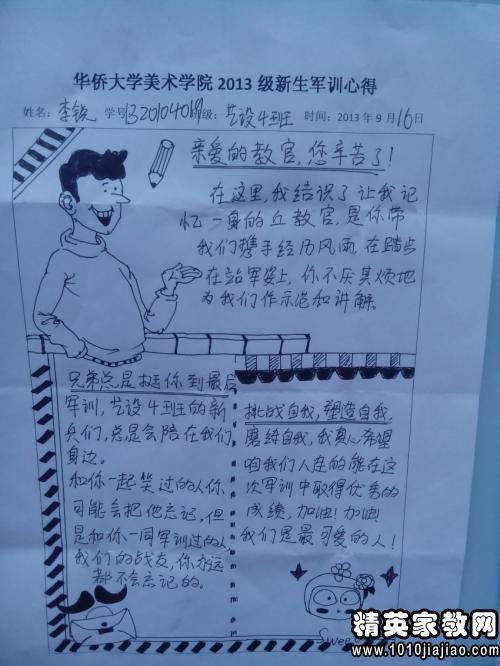 华侨大学美术学院2013级新生军训心得
姓名:李锐 学号 班级:艺设4班 时间:2013年9月16日
亲爱的教官,您辛苦了!
在这里,我结识了让我记
忆一身的丘教官,是你带
我们携手经历风雨,在踏步
在站军姿上,你不厌其烦地
为我们作示范和讲解。
兄弟总是挺你到最后
军训,艺设4班的新
兵们,总是会陪在我们
身边。
和你一起笑过的人你
可能会把他忘记,但
是和你一同军训过的人,
我们的战友,你永远
都不会忘记的。
挑战自我,塑造自我,
磨练自我,我真心希望
咱我们人在的能在这
次军训中取得优秀的
成绩,加油!加油!
我们是最可爱的人!
Swee
精英家教网
www.1010jiajiao.com